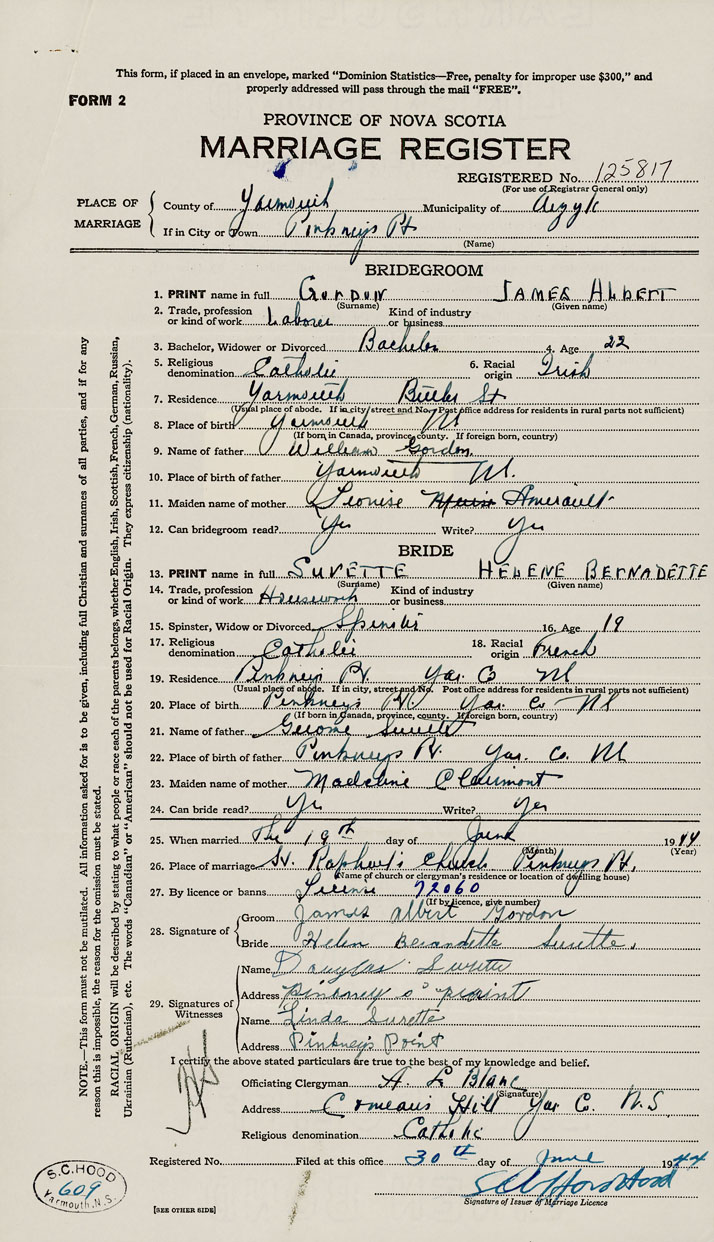 This form, if placed in an envelope, marked "Dominion Statistics—Free, penalty for improper use $300," and
properly addressed will pass through the mail "FREE".
FORM 2
PROVINCE OF NOVA SCOTIA
MARRIAGE REGISTER
REGISTERED No. 125817
(For use of Registrar General only)
PLACE OF MARRIAGE
County of Yarmouth Municipality of Argyle
If in City or Town Pinkneys Pt
(Name)
BRIDEGROOM
1. PRINT name in full GORDON JAMES ALBERT
(Surname) (Given name)
2. Trade, profession or kind of work Laborer Kind of industry or business
3. Bachelor, Widower or Divorced Bachelor 4. Age 22
5. Religious denomination Catholic 6. Racial origin Irish
7. Residence Yarmouth Butler St
(Usual place of abode. If in city, street and No. Post office address for residents in rural parts not sufficient)
8. Place of birth Yarmouth
(If born in Canada, province, county. If foreign born, country)
9. Name of father William Gordon
10. Place of birth of father Yarmouth
11. Maiden name of mother Leonise Amerault
12. Can bridegroom read? Yes Write? Yes
BRIDE
13. PRINT name in full SURETTE HELENE BERNADETTE
(Surname) (Given name)
14. Trade, profession or kind of work Housework Kind of industry or business
15. Spinster, Widow or Divorced Spinster 16. Age 19
17. Religious denomination Catholic 18. Racial origin French
19. Residence Pinkneys Pt. Yar. Co
(Usual place of abode. If in city, street and No. Post office address for residents in rural parts not sufficient)
20. Place of birth Pinkneys Pt. Yar. Co
(If born in Canada, province, county. If foreign born, country)
21. Name of father Gerome Surette
22. Place of birth of father Pinkneys Pt. Yar. Co.
23. Maiden name of mother Madeline Clairmont
24. Can bride read? Yes Write? Yes
25. When married The 19th day of June 1944
(Month) (Year)
26. Place of marriage St. Raphael's Church Pinkneys Pt.
(Name of church or clergyman's residence or location of dwelling house)
27. By licence or banns License 72060
(If by licence, give number)
28. Signature of
Groom James Albert Gordon
Bride Helen Bernadette Surette.
29. Signatures of Witnesses
Name Douglas Surette
Address Pinkney's point
Name Linda Surette
Address Pinkney's Point
I certify the above stated particulars are true to the best of my knowledge and belief.
Officiating Clergyman A. L Blanc
(Signature)
Address Comeau's Hill Yar Co. N.S.
Religious denomination Catholic
Registered No. Filed at this office 30th day of June 1944
Signature of Issuer of Marriage Licence
[SEE OTHER SIDE]
S.C. HOOD
609
Yarmouth, N.S.
NOTE.—This form must not be mutilated. All information asked for is to be given, including full Christian and surnames of all parties, and if for any
reason this is impossible, the reason for the omission must be stated.
RACIAL ORIGIN will be described by stating to what people or race each of the parents belongs, whether English, Irish, Scottish, French, German, Russian,
Ukrainian (Ruthenian), etc. The words "Canadian" or "American" should not be used for Racial Origin. They express citizenship (nationality).